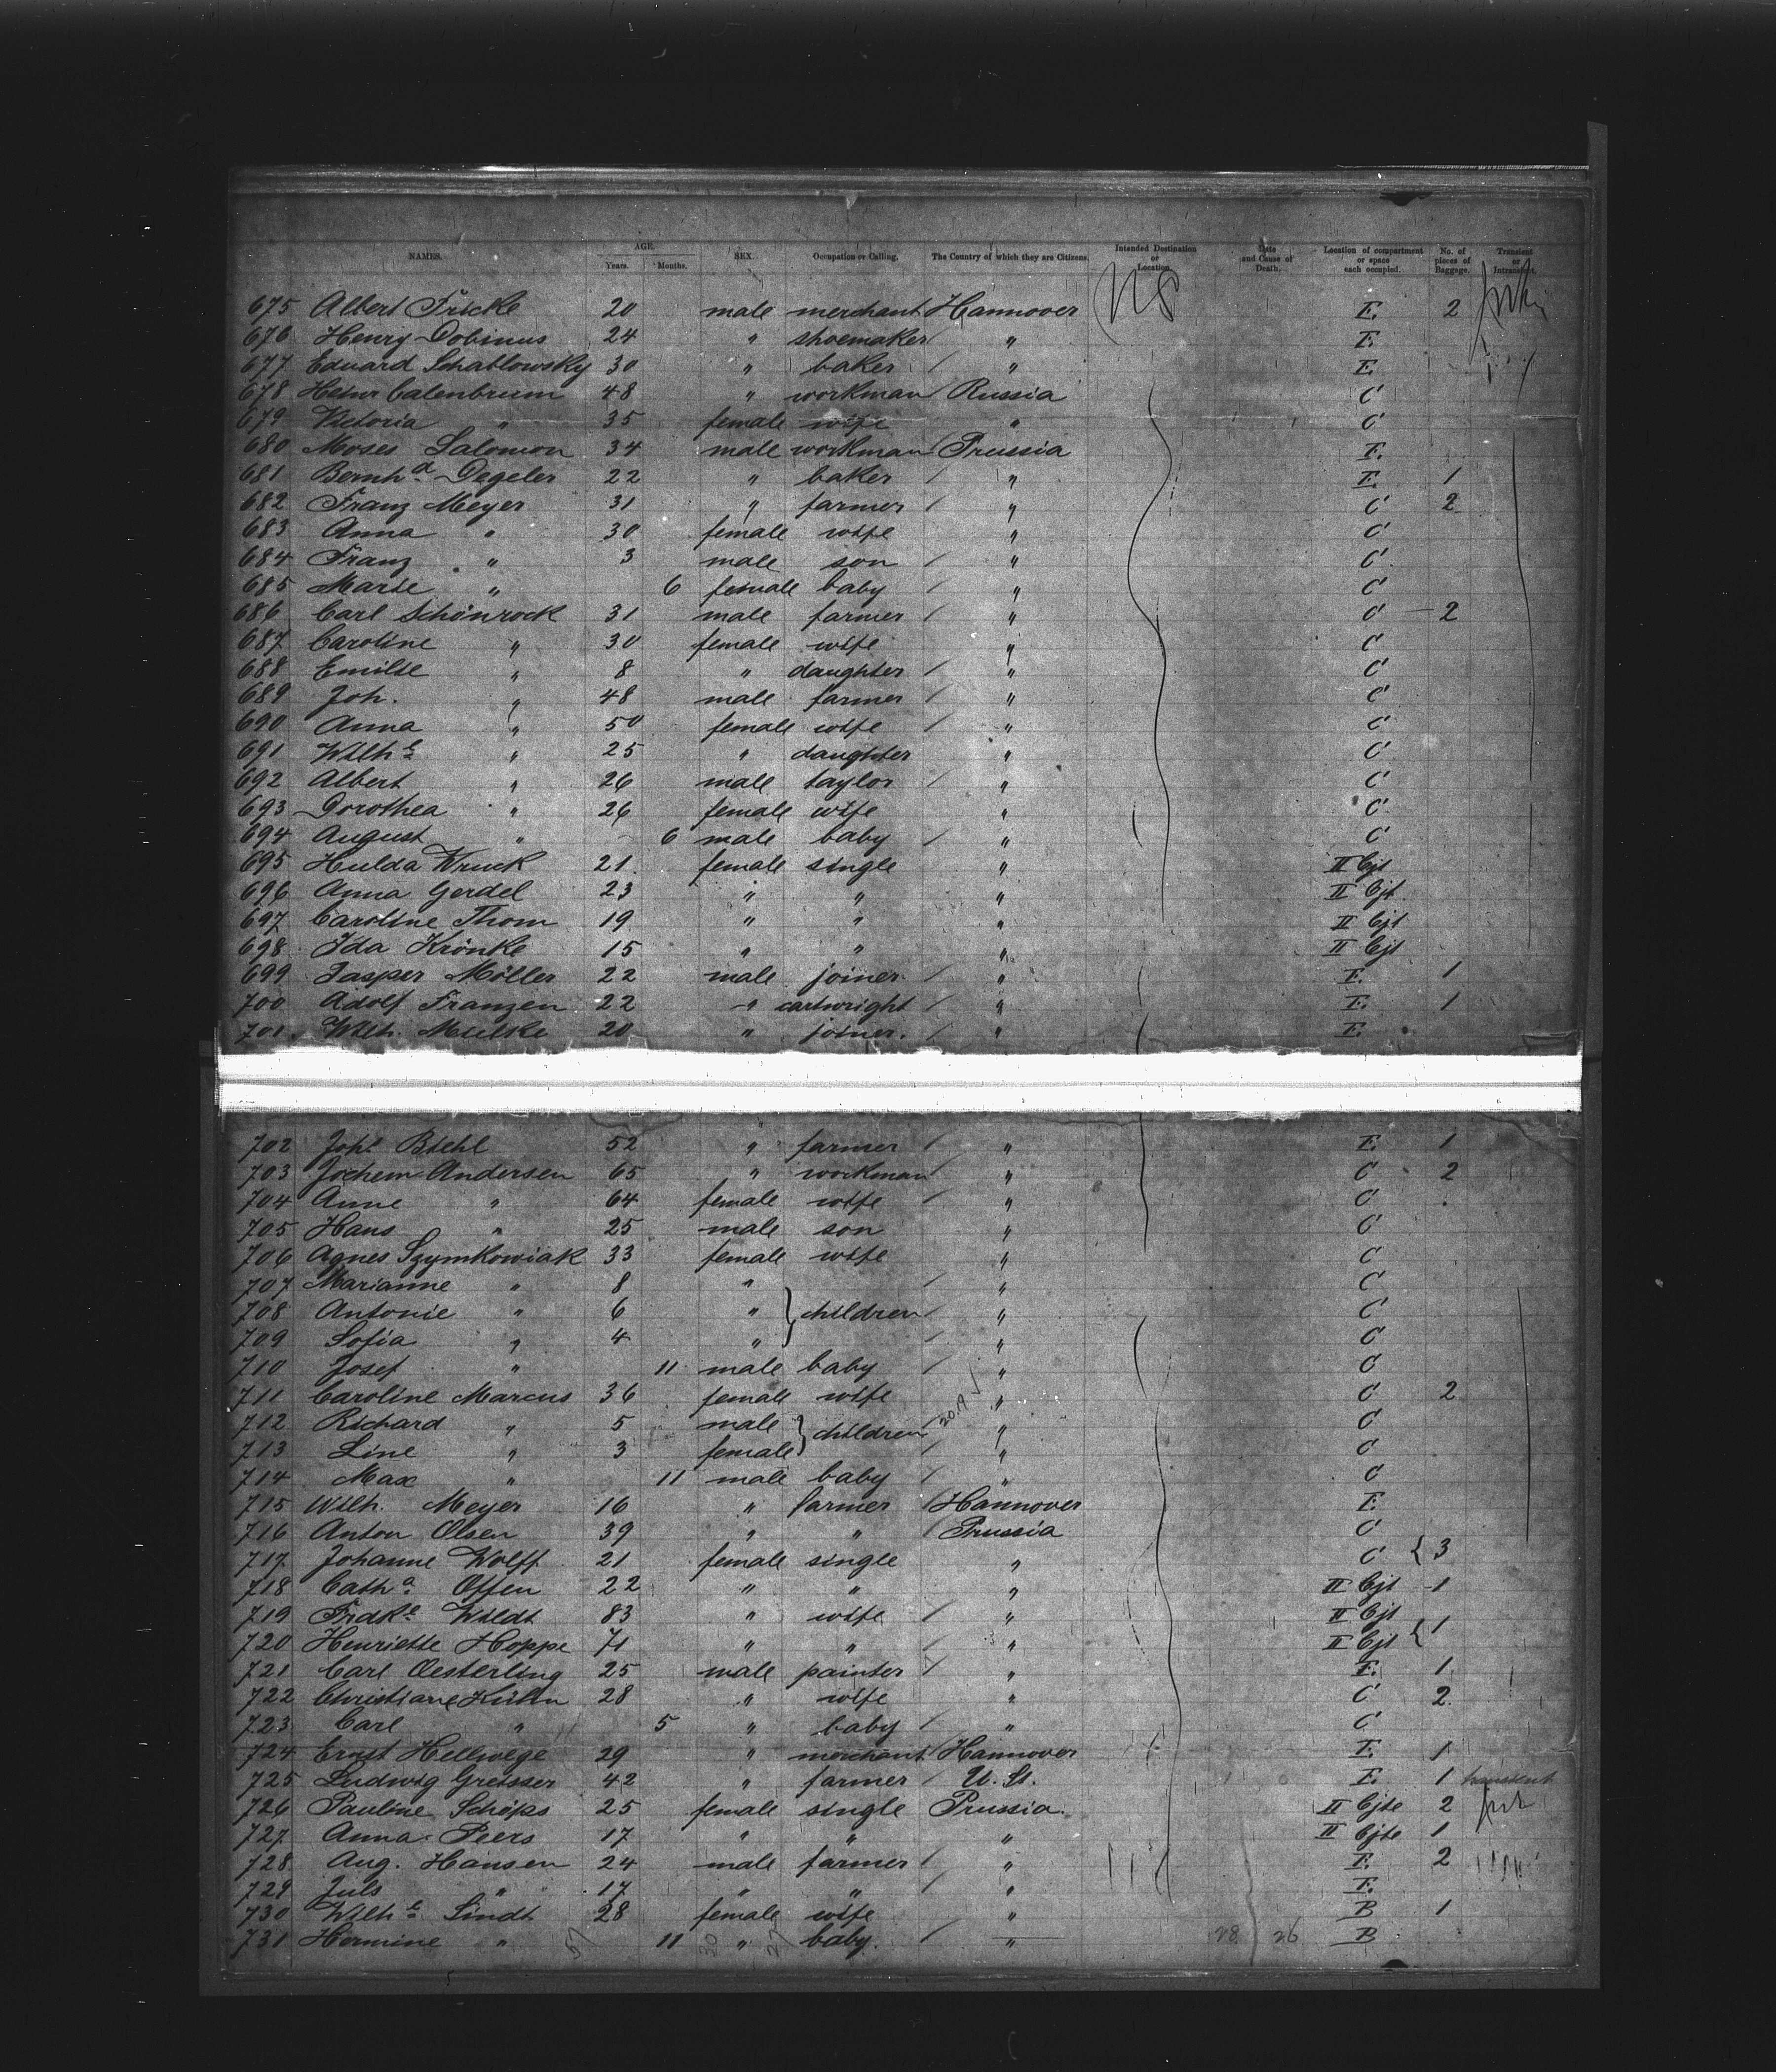 NAMES. AGE. Years. Months. SEX. Occupation or Calling. The Country of which they are Citizens. Intended Destination or Location. Date and Cause of Death. Location of compartment or space each occupied. No. of pieces of Baggage. Transient or Intransient.
675 Albert Fricke 20 male merchant Hannover US E. 2
676 Henry Dobinus 24 " shoemaker " E.
677 Eduard Schablowsky 30 " baker " E.
678 Heinr Calenbrum 48 " workman Russia C
679 Victoria " 35 female wife " C
680 Moses Salomon 34 male workman Prussia E.
681 Bernhd Degeler 22 " baker " E. 1
682 Franz Meyer 31 " farmer " C 2
683 Anna " 30 female wife " C
684 Franz " 3 male son " C
685 Marie " 6 female baby " C
686 Carl Schönrock 31 male farmer " C 2
687 Caroline " 30 female wife " C
688 Emilie " 8 " daughter " C
689 Joh. " 48 male farmer " C
690 Anna " 50 female wife " C
691 Wilhe " 25 " daughter " C
692 Albert " 26 male taylor " C
693 Dorothea " 26 female wife " C
694 August " 6 male baby " C
695 Hulda Wruck 21 female single " II Cjt
696 Anna Gerdel 23 " " " II Cjt
697 Caroline Thom 19 " " " II Cjt
698 Ida Krönke 15 " " " II Cjt
699 Jasper Möller 22 male joiner " E. 1
700 Adolf Franzen 22 " cartwright " E. 1
701 Wilh. Mielke 20 " joiner. " E.
702 Johs Biehl 52 " farmer " E. 1
703 Jochem Andersen 65 " workman " C 2
704 Anne " 64 female wife " C
705 Hans " 25 male son " C
706 Agnes Szymkowiak 33 female wife " C
707 Marianne " 8 " " C
708 Antonie " 6 " } children " C
709 Sofia " 4 " " C
710 Josef " 11 male baby " C
711 Caroline Marcus 36 female wife " C 2
712 Richard " 5 male } children " C
713 Line " 3 female " C
714 Max " 11 male baby " C
715 Wilh. Meyer 16 " farmer Hannover E
716 Anton Olsen 39 " " Prussia C
717 Johanne Wolff 21 female single " C { 3
718 Catha Offen 22 " " " II Cjt 1
719 Frdke Wildt 83 " wife " II Cjt
720 Henriette Hoppe 71 " " " II Cjt { 1
721 Carl Oesterling 25 male painter " E. 1
722 Christiane Kühn 28 " wife " C 2
723 Carl " 5 " baby " C
724 Ernst Hellwege 29 " merchant Hannover E. 1
725 Ludwig Greisser 42 " farmer U. St. E. 1 transient
726 Pauline Schöps 25 female single Prussia. II Cjte 2
727 Anna Peers 17 " " " II Cjte 1
728 Aug. Hansen 24 male farmer " E. 2
729 Juls " 17 " " " E.
730 Wilhe Lindt 28 female wife " B 1
731 Hermine " 11 " baby. " B